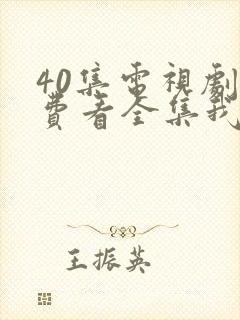 40集電視劇
費看全集我
王振英